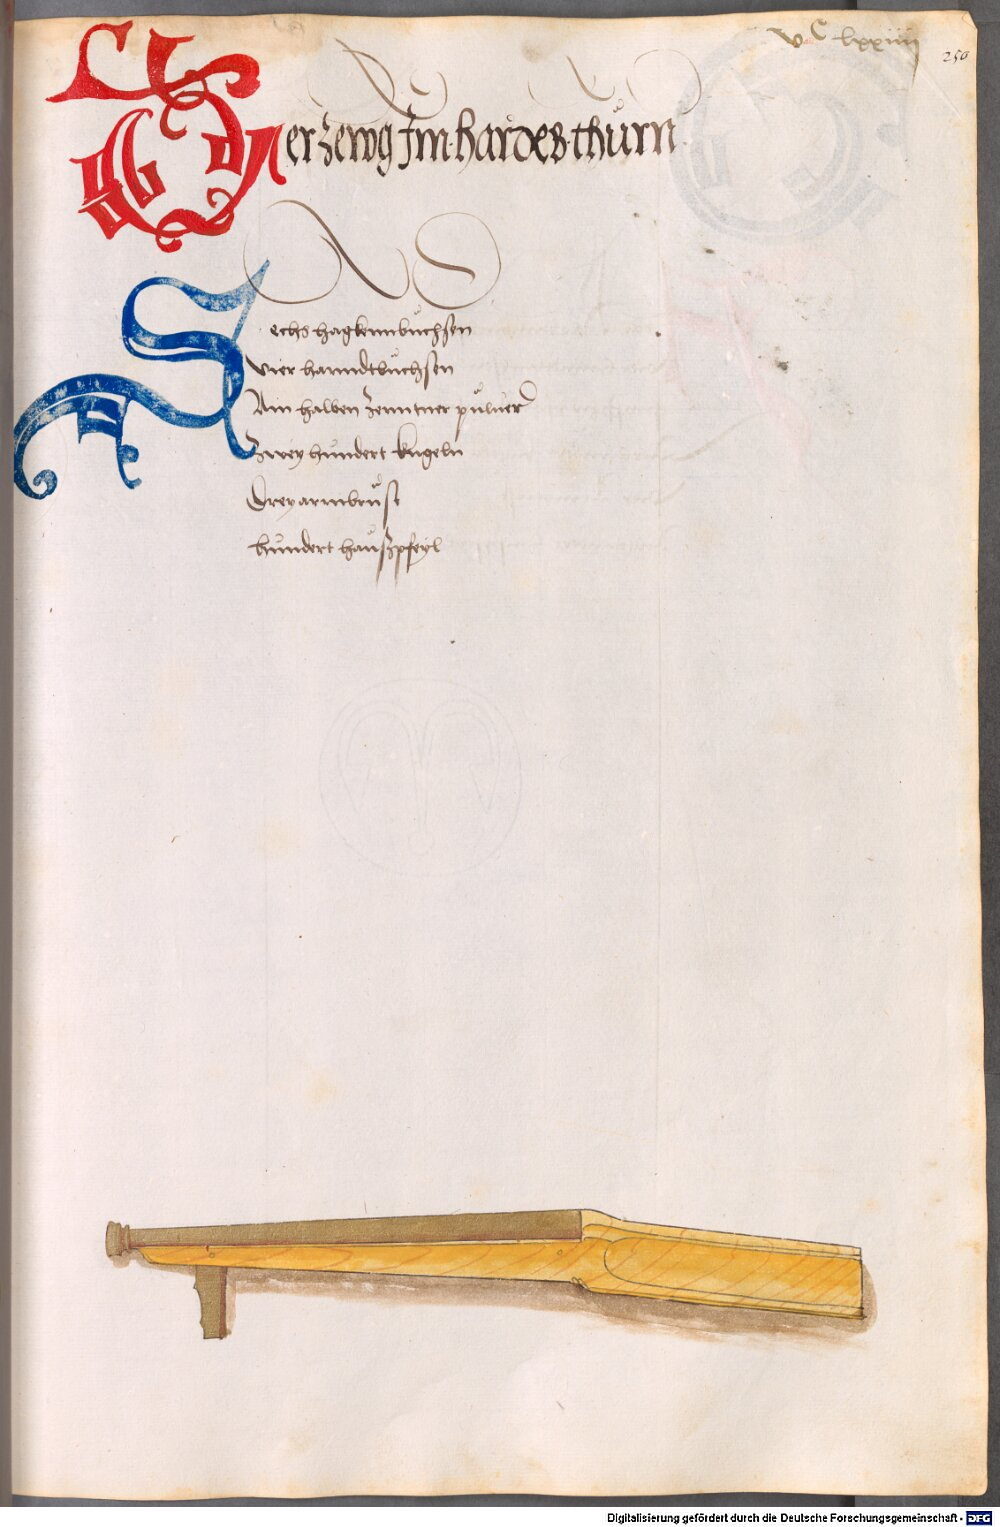 vᶜ lxxiiii
250
Der zewg Jm hardes thůrn
Sechs hagkennbůchsen
Vier hanndtbůchsen
Ain halben Zenntner půluer
Zwey hůndert kugeln
Drey armbrůst
hůndert haůßpfeyl
Digitalisierung gefördert durch die Deutsche Forschungsgemeinschaft - DFG